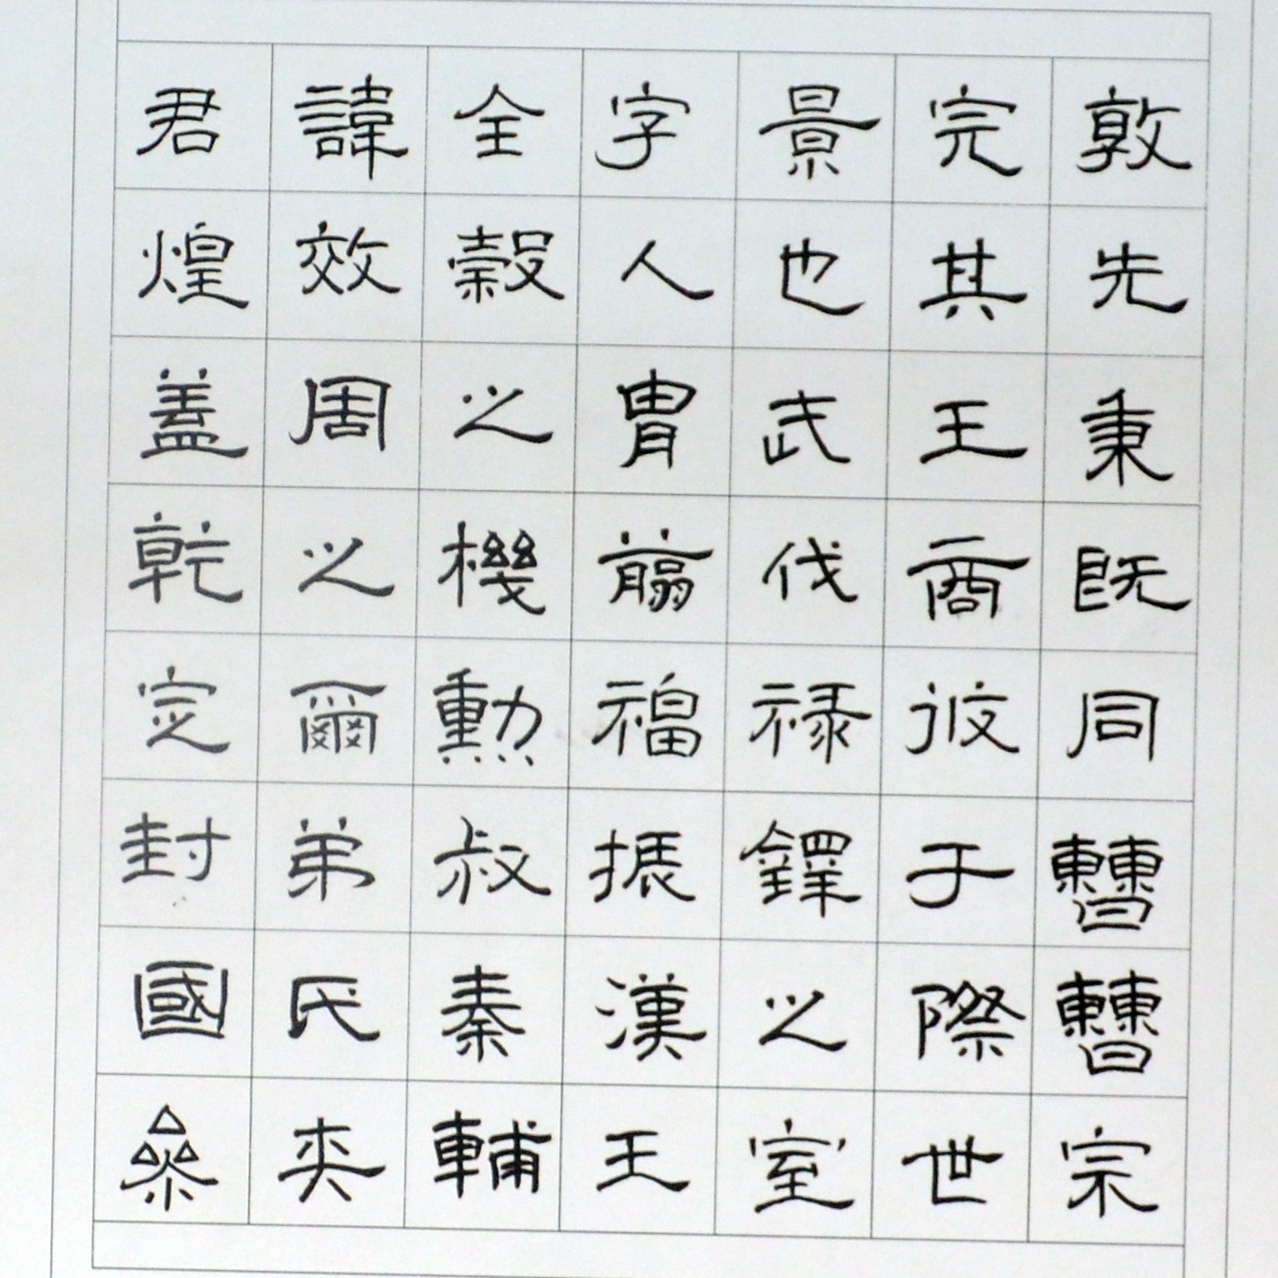 君諱全字景完敦
煌效穀人也其先
蓋周之胄武王秉
乾之機翦伐商既
定爾勳福祿攸同
封弟叔振鐸于曹
國氏秦漢之際曹
參夾輔王室世宗